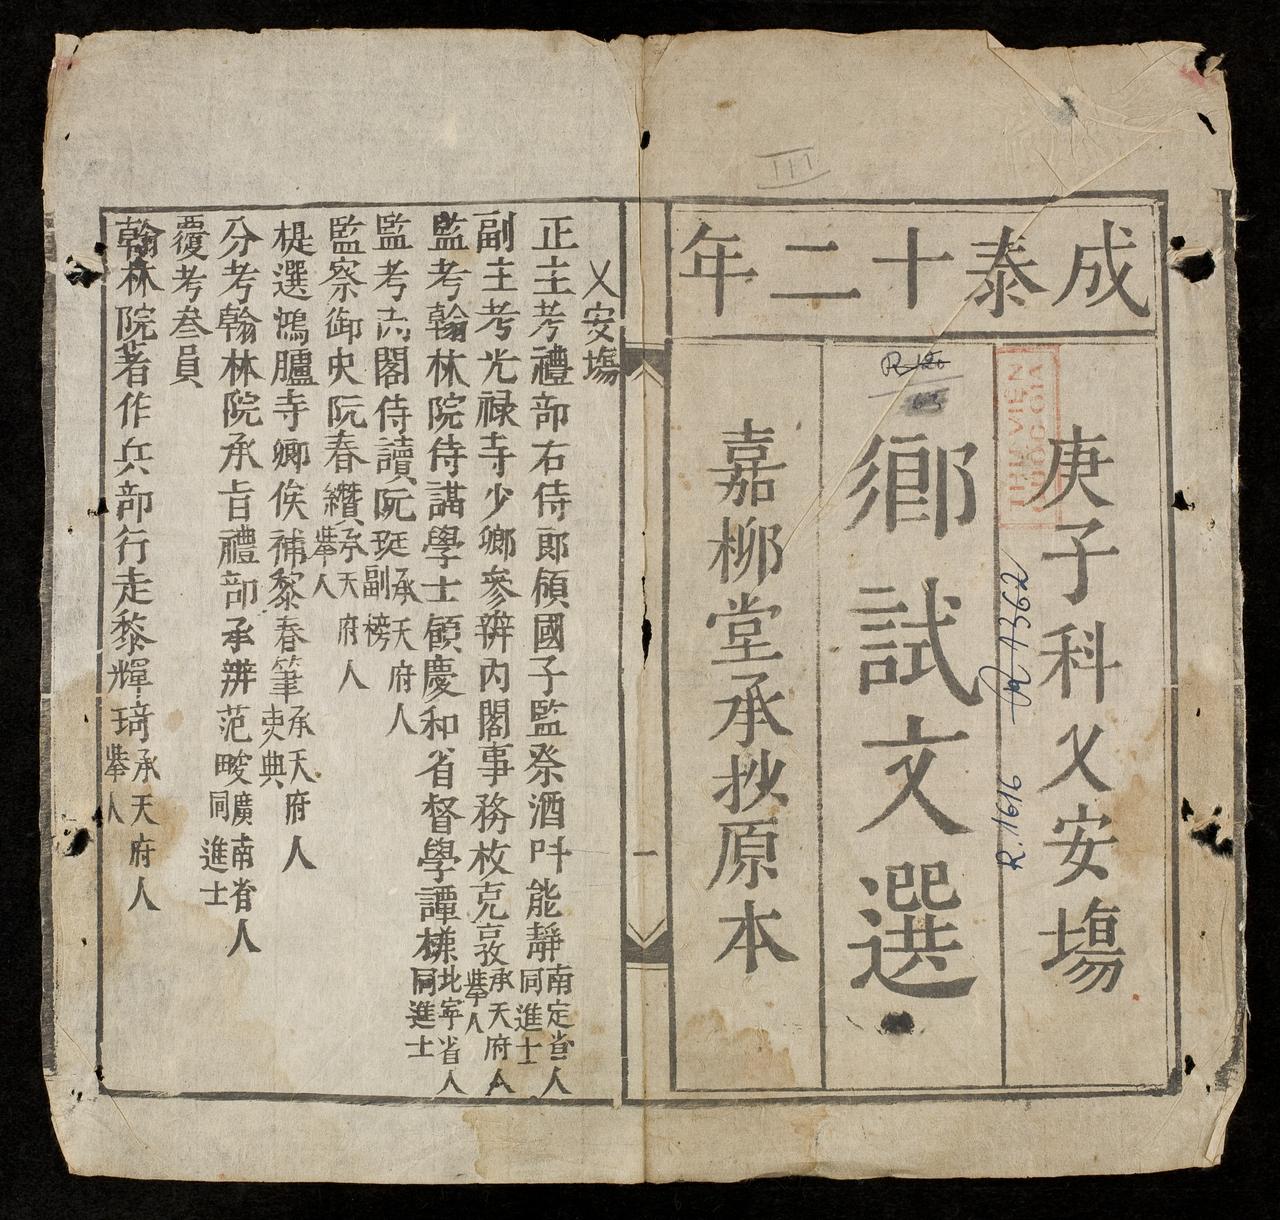 成泰十二年
庚子科乂安塲
鄉試文選
嘉柳堂承抄原本
THƯ VIỆN
QUỐC GIA
R.1616
A362
III
乂安塲
正主考禮部右侍郎領國子監祭酒叶能靜南定省人同進士
副主考光禄寺少卿參辦内閣事務枚克敦承天府人舉人
監考翰林院侍講學士領慶和省督學譚 北寧省人同進士
監考 閣侍讀阮珽承天府人副榜
監察御史阮春纘承天府人舉人
提選鴻臚寺卿俟補黎春筆承天府人吏典
分考翰林院承旨禮部承辦范畯廣南省人同進士
覆考叁員
翰林院著作兵部行走黎輝琦承天府人舉人
一